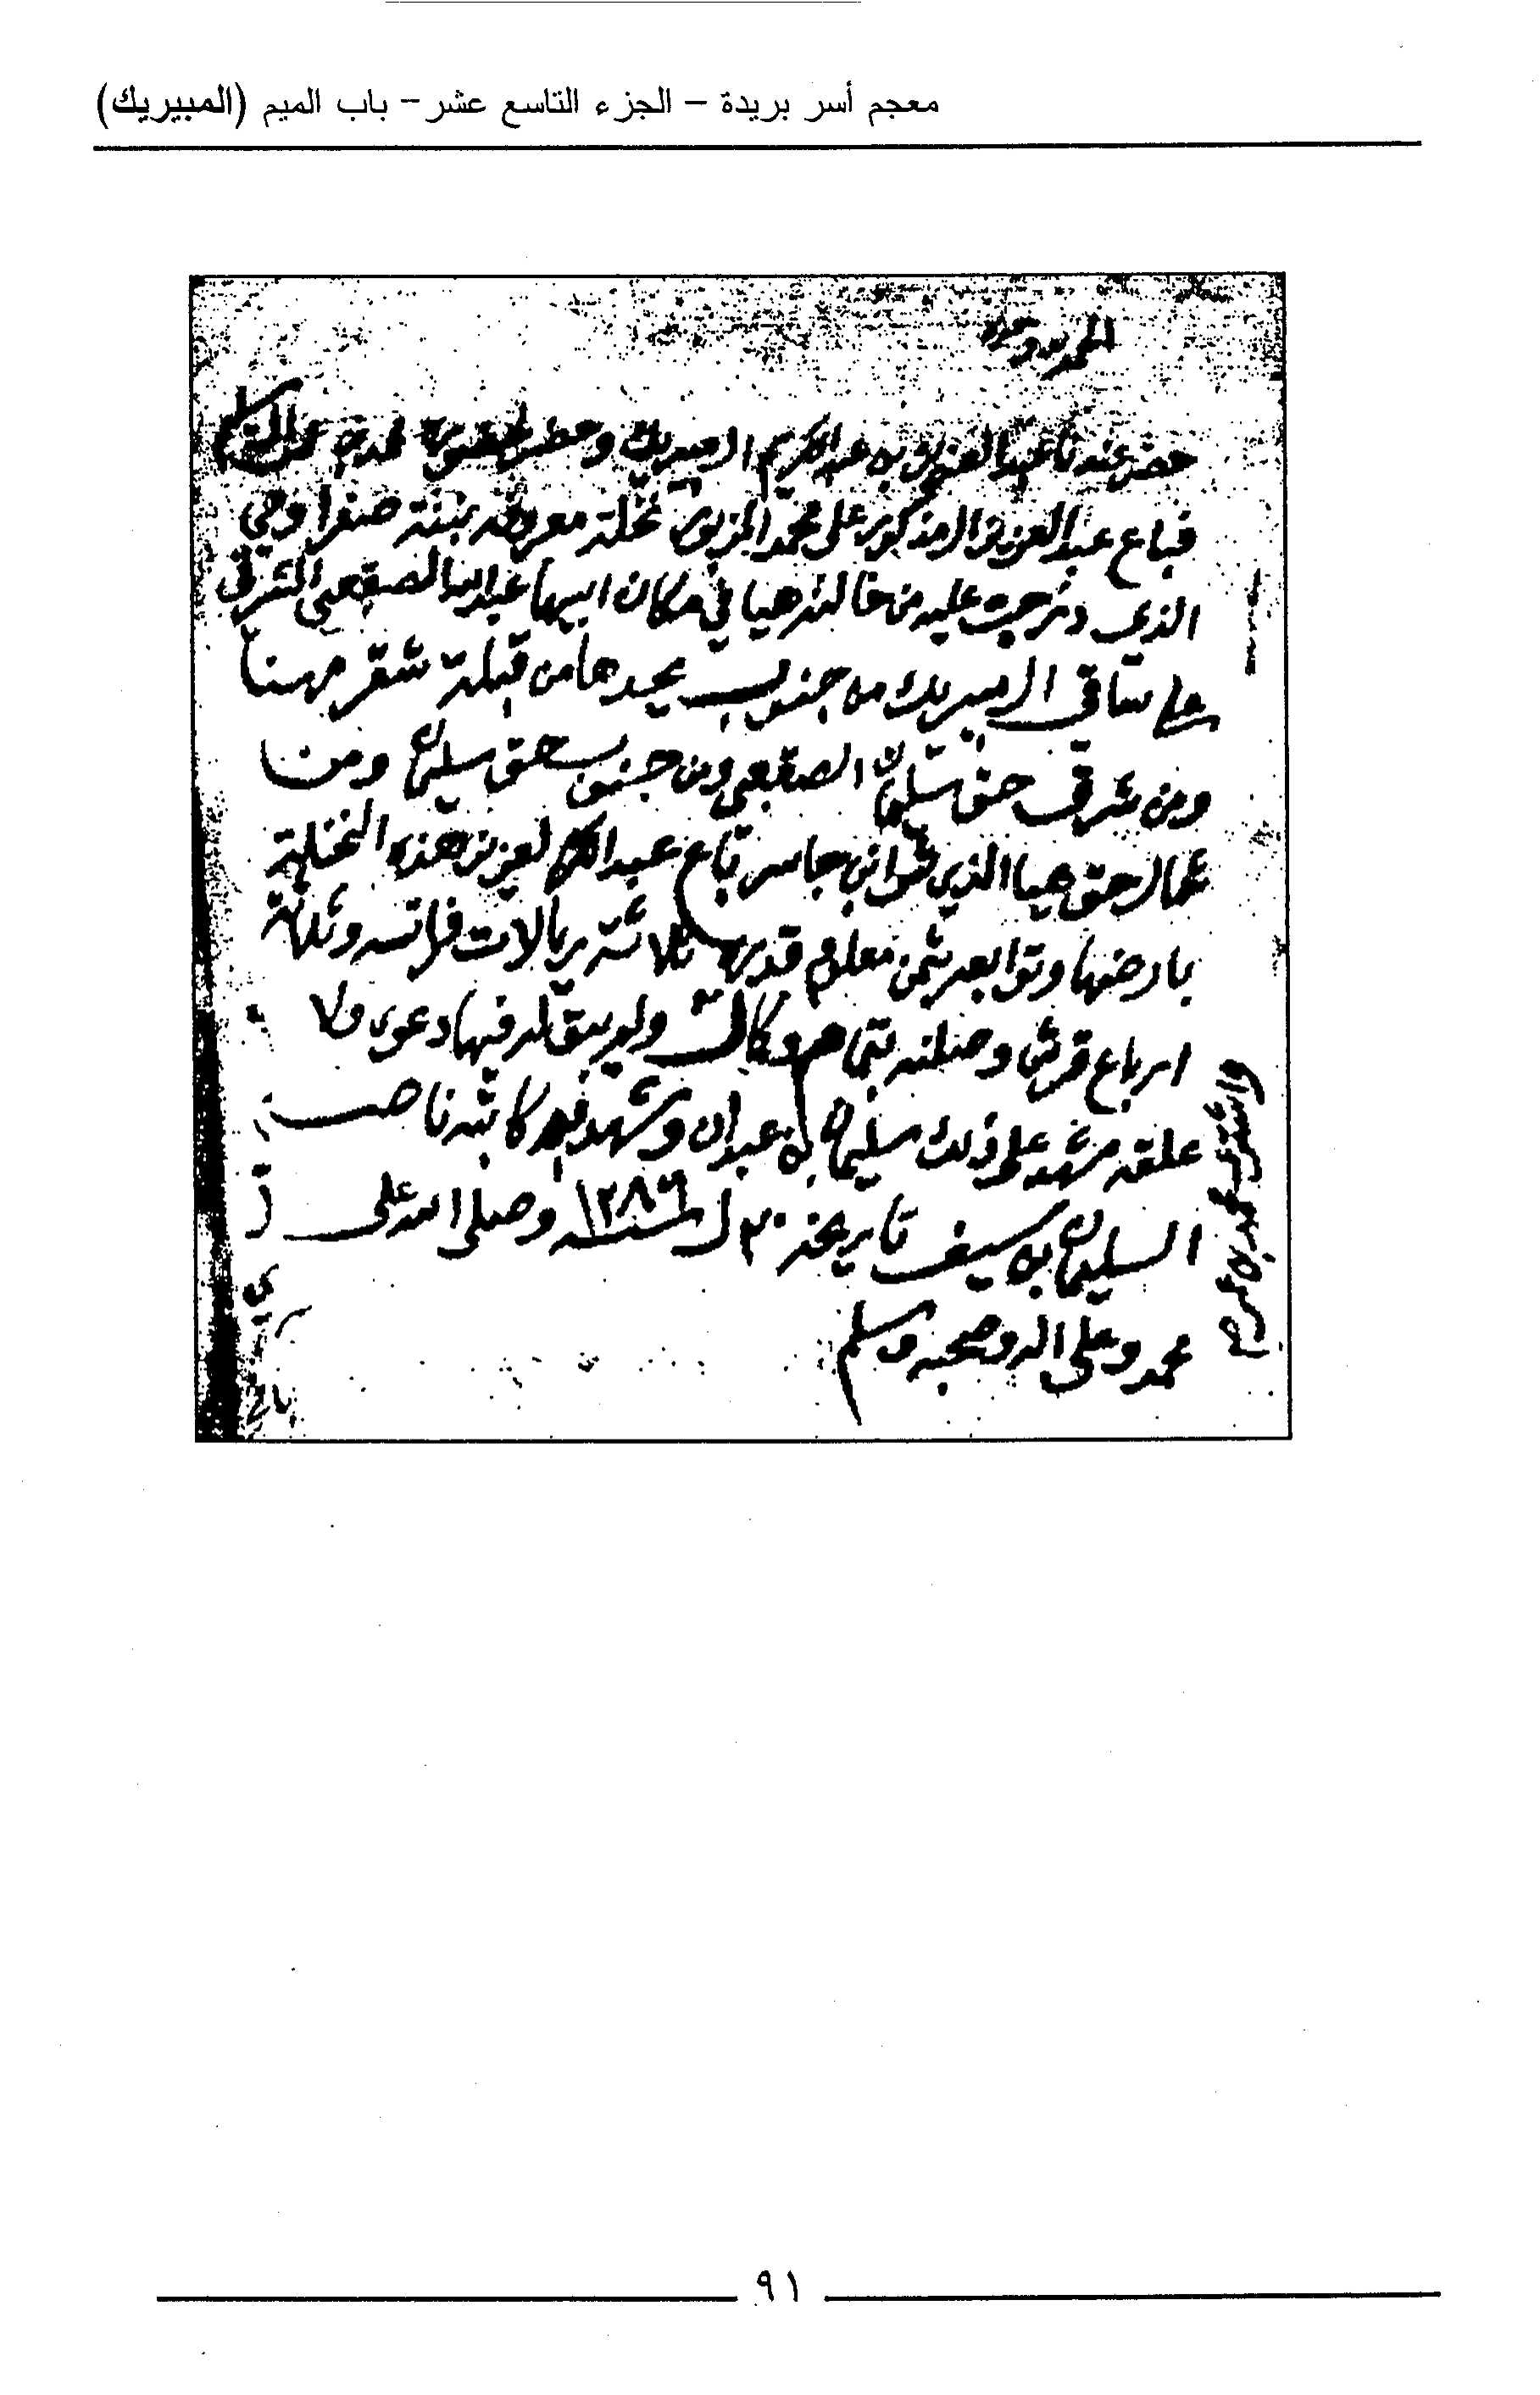 معجم أسر بريدة – الجزء التاسع عشر – باب الميم (المبيريك)
الحمد لله وحده
حضر عندنا عبدالعزيز بن عبدالكريم المبيريك وحضر محمد
فباع عبدالعزيز المذكور على محمد نخلة معروفه بنبتة صفرا وهي
الذي درجت عليه من خالته هيا في مكان ابيها عبدالله الصقعبي الشرقي
على ساقي المبيريك من جنوب يحدها من قبلة شقر مهنا
ومن شرق حق سليمان الصقعبي ومن جنوب حق سليمان ومن
شمال حق هيا الذي جاسر باع عبدالعزيز هذه النخلة
بارضها وتوابعه بثمن معلوم قدره ثلاثة ريالات فرانسه وثلاثة
ارباع قرش وصلنه وكمال ولم يبق له فيها دعوى ولا
علقه شهد على ذلك سليمان بن عبدان وشهد به كاتبه ناصر
السليمان بن سيف تاريخه ٢٠ ل سنة ١٢٨٦ وصلى الله على
محمد وعلى اله وصحبه وسلم
٩١